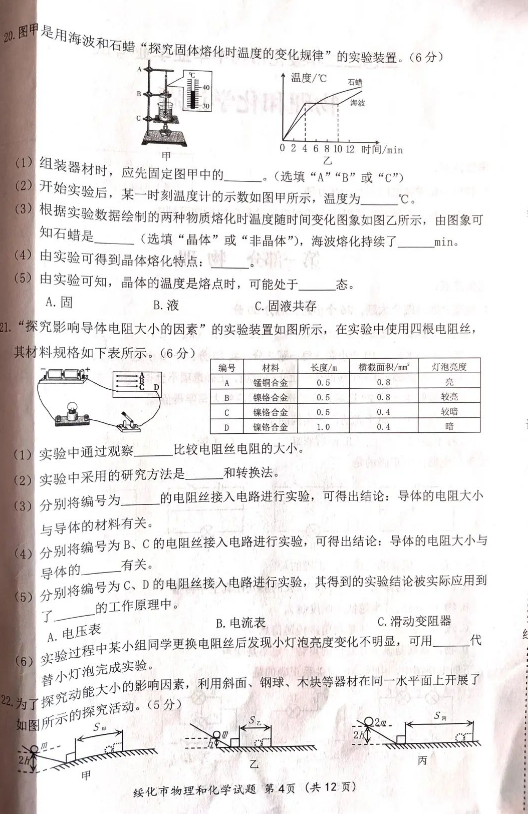 20.图甲是用海波和石蜡“探究固体熔化时温度的变化规律”的实验装置。(6分)
A
B
C
℃
40
30
甲
温度/℃
石蜡
海波
0 2 4 6 8 10 12 时间/min
乙
(1) 组装器材时，应先固定图甲中的______。(选填“A”“B”或“C”)
(2) 开始实验后，某一时刻温度计的示数如图甲所示，温度为______℃。
(3) 根据实验数据绘制的两种物质熔化时温度随时间变化图象如图乙所示，由图象可
知石蜡是______（选填“晶体”或“非晶体”），海波熔化持续了______min。
(4) 由实验可得到晶体熔化特点：______。
(5) 由实验可知，晶体的温度是熔点时，可能处于______态。
A.固 B.液 C.固液共存
21.“探究影响导体电阻大小的因素”的实验装置如图所示，在实验中使用四根电阻丝，
其材料规格如下表所示。(6分)
A
B
C
D
编号 材料 长度/m 横截面积/mm² 灯泡亮度
A 锰铜合金 0.5 0.8 亮
B 镍铬合金 0.5 0.8 较亮
C 镍铬合金 0.5 0.4 较暗
D 镍铬合金 1.0 0.4 暗
(1) 实验中通过观察______比较电阻丝电阻的大小。
(2) 实验中采用的研究方法是______和转换法。
(3) 分别将编号为______的电阻丝接入电路进行实验，可得出结论：导体的电阻大小
与导体的材料有关。
(4) 分别将编号为B、C的电阻丝接入电路进行实验，可得出结论：导体的电阻大小与
导体的______有关。
(5) 分别将编号为C、D的电阻丝接入电路进行实验，其得到的实验结论被实际应用到
了______的工作原理中。
A.电压表 B.电流表 C.滑动变阻器
(6) 实验过程中某小组同学更换电阻丝后发现小灯泡亮度变化不明显，可用______代
替小灯泡完成实验。
22.为了探究动能大小的影响因素，利用斜面、钢球、木块等器材在同一水平面上开展了
如图所示的探究活动。(5分)
m 2h S甲 甲
m h S乙 乙
2m 2h S丙 丙
绥化市物理和化学试题 第4页（共12页）